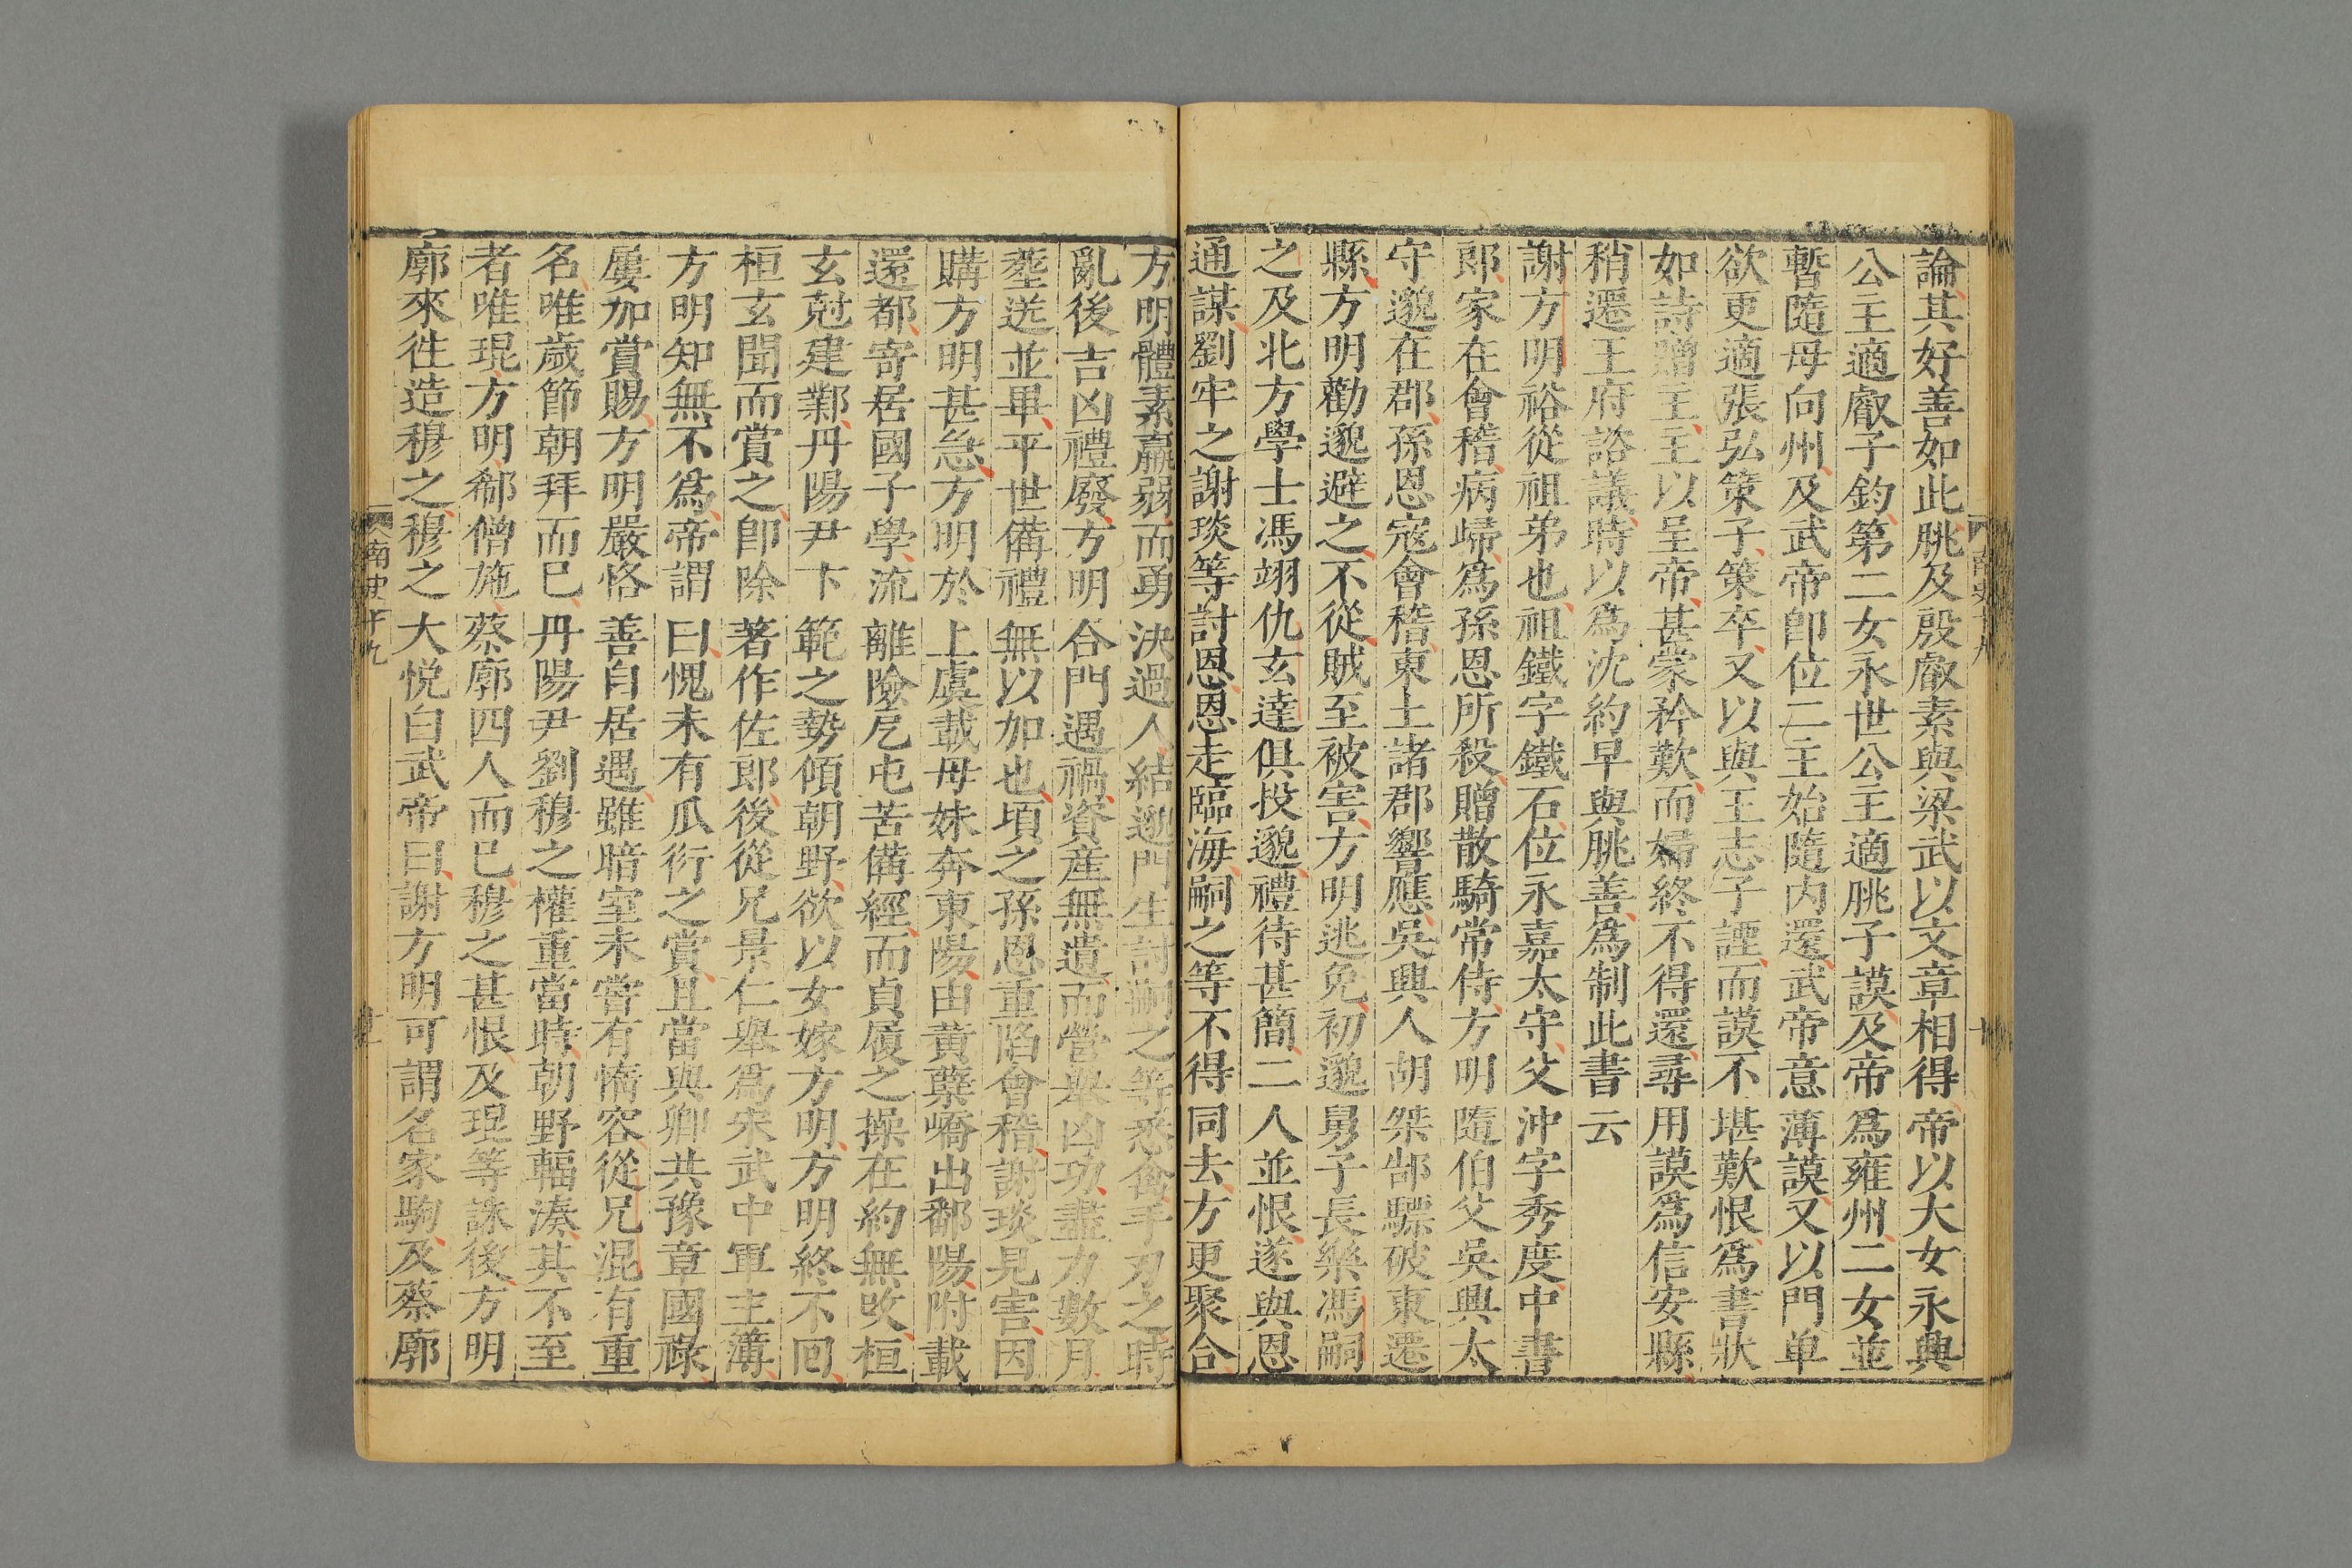 論其好善如此朓及殷叡素與梁武以文章相得帝以大女永興
公主適叡子鈞第二女永世公主適朓子謨及帝爲雍州二女並
暫隨母向州及武帝即位二主始隨內還武帝意薄謨又以門单
欲更適張弘策子策卒又以與王志子諲而謨不堪歎恨爲書狀
如詩贈主主以呈帝甚蒙矜歎而婦終不得還尋用謨爲信安縣
稍遷王府諮議時以爲沈約早與朓善爲制此書云
謝方明裕從祖弟也祖鐵字鐵石位永嘉太守父沖字秀度中書
郎家在會稽病歸爲孫恩所殺贈散騎常侍方明隨伯父吳興太
守邈在郡孫恩寇會稽東土諸郡響應吳興人胡桀郜驃破東遷
縣方明勸邈避之不從賊至被害方明逃免初邈舅子長樂馮嗣
之及北方學士馮翊仇玄達俱投邈禮待甚簡二人並恨遂與恩
通謀劉牢之謝琰等討恩恩走臨海嗣之等不得同去方更聚合
方明體素羸弱而勇決過人結邈門生討嗣之等悉禽手刃之時
亂後吉凶禮廢方明合門遇禍資産無遺而營舉凶功盡力數月
塟送並畢平世備禮無以加也頃之孫恩重陷會稽謝琰見害因
購方明甚急方明於上虞載母妹奔東陽由黄蘗嶠出鄱陽附載
還都寄居國子學流離險戹屯苦備經而貞履之操在約無攺桓
玄尅建鄴丹陽尹卞範之勢傾朝野欲以女嫁方明方明終不囘
桓玄聞而賞之即除著作佐郎後從兄景仁舉爲宋武中軍主簿
方明知無不爲帝謂曰愧未有瓜衍之賞且當與卿共豫章國祿
屢加賞賜方明嚴恪善自居遇雖暗室未嘗有惰容從兄混有重
名唯歲節朝拜而已丹陽尹劉穆之權重當時朝野輻湊其不至
者唯琨方明郗僧施蔡廓四人而已穆之甚恨及琨等誅後方明
廓來徃造穆之穆之大悅白武帝曰謝方明可謂名家駒及蔡廓
南史十九